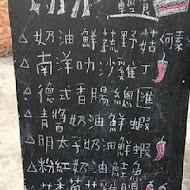 輕食
△奶油鮮蔬野菇
△南洋叻沙雞丁
△德式香腸總匯
△青醬奶油鮮蝦
△明太子奶油鮮蝦
△粉紅奶油鮭魚